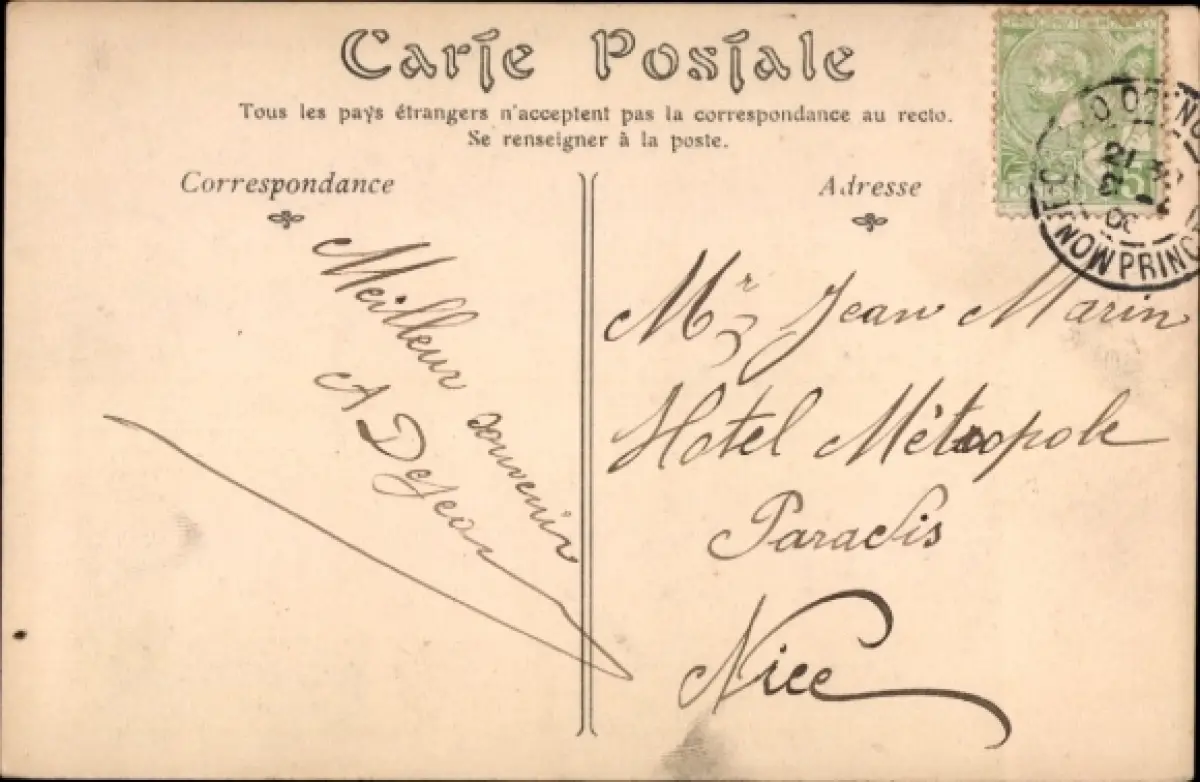 Carte Postale
Tous les pays étrangers n'acceptent pas la correspondance au recto.
Se renseigner à la poste.
Correspondance
Adresse
Meilleur souvenir
A Dejean
Mr Jean Marin
Hotel Métropole
Paradis
Nice
5
21
PRINC